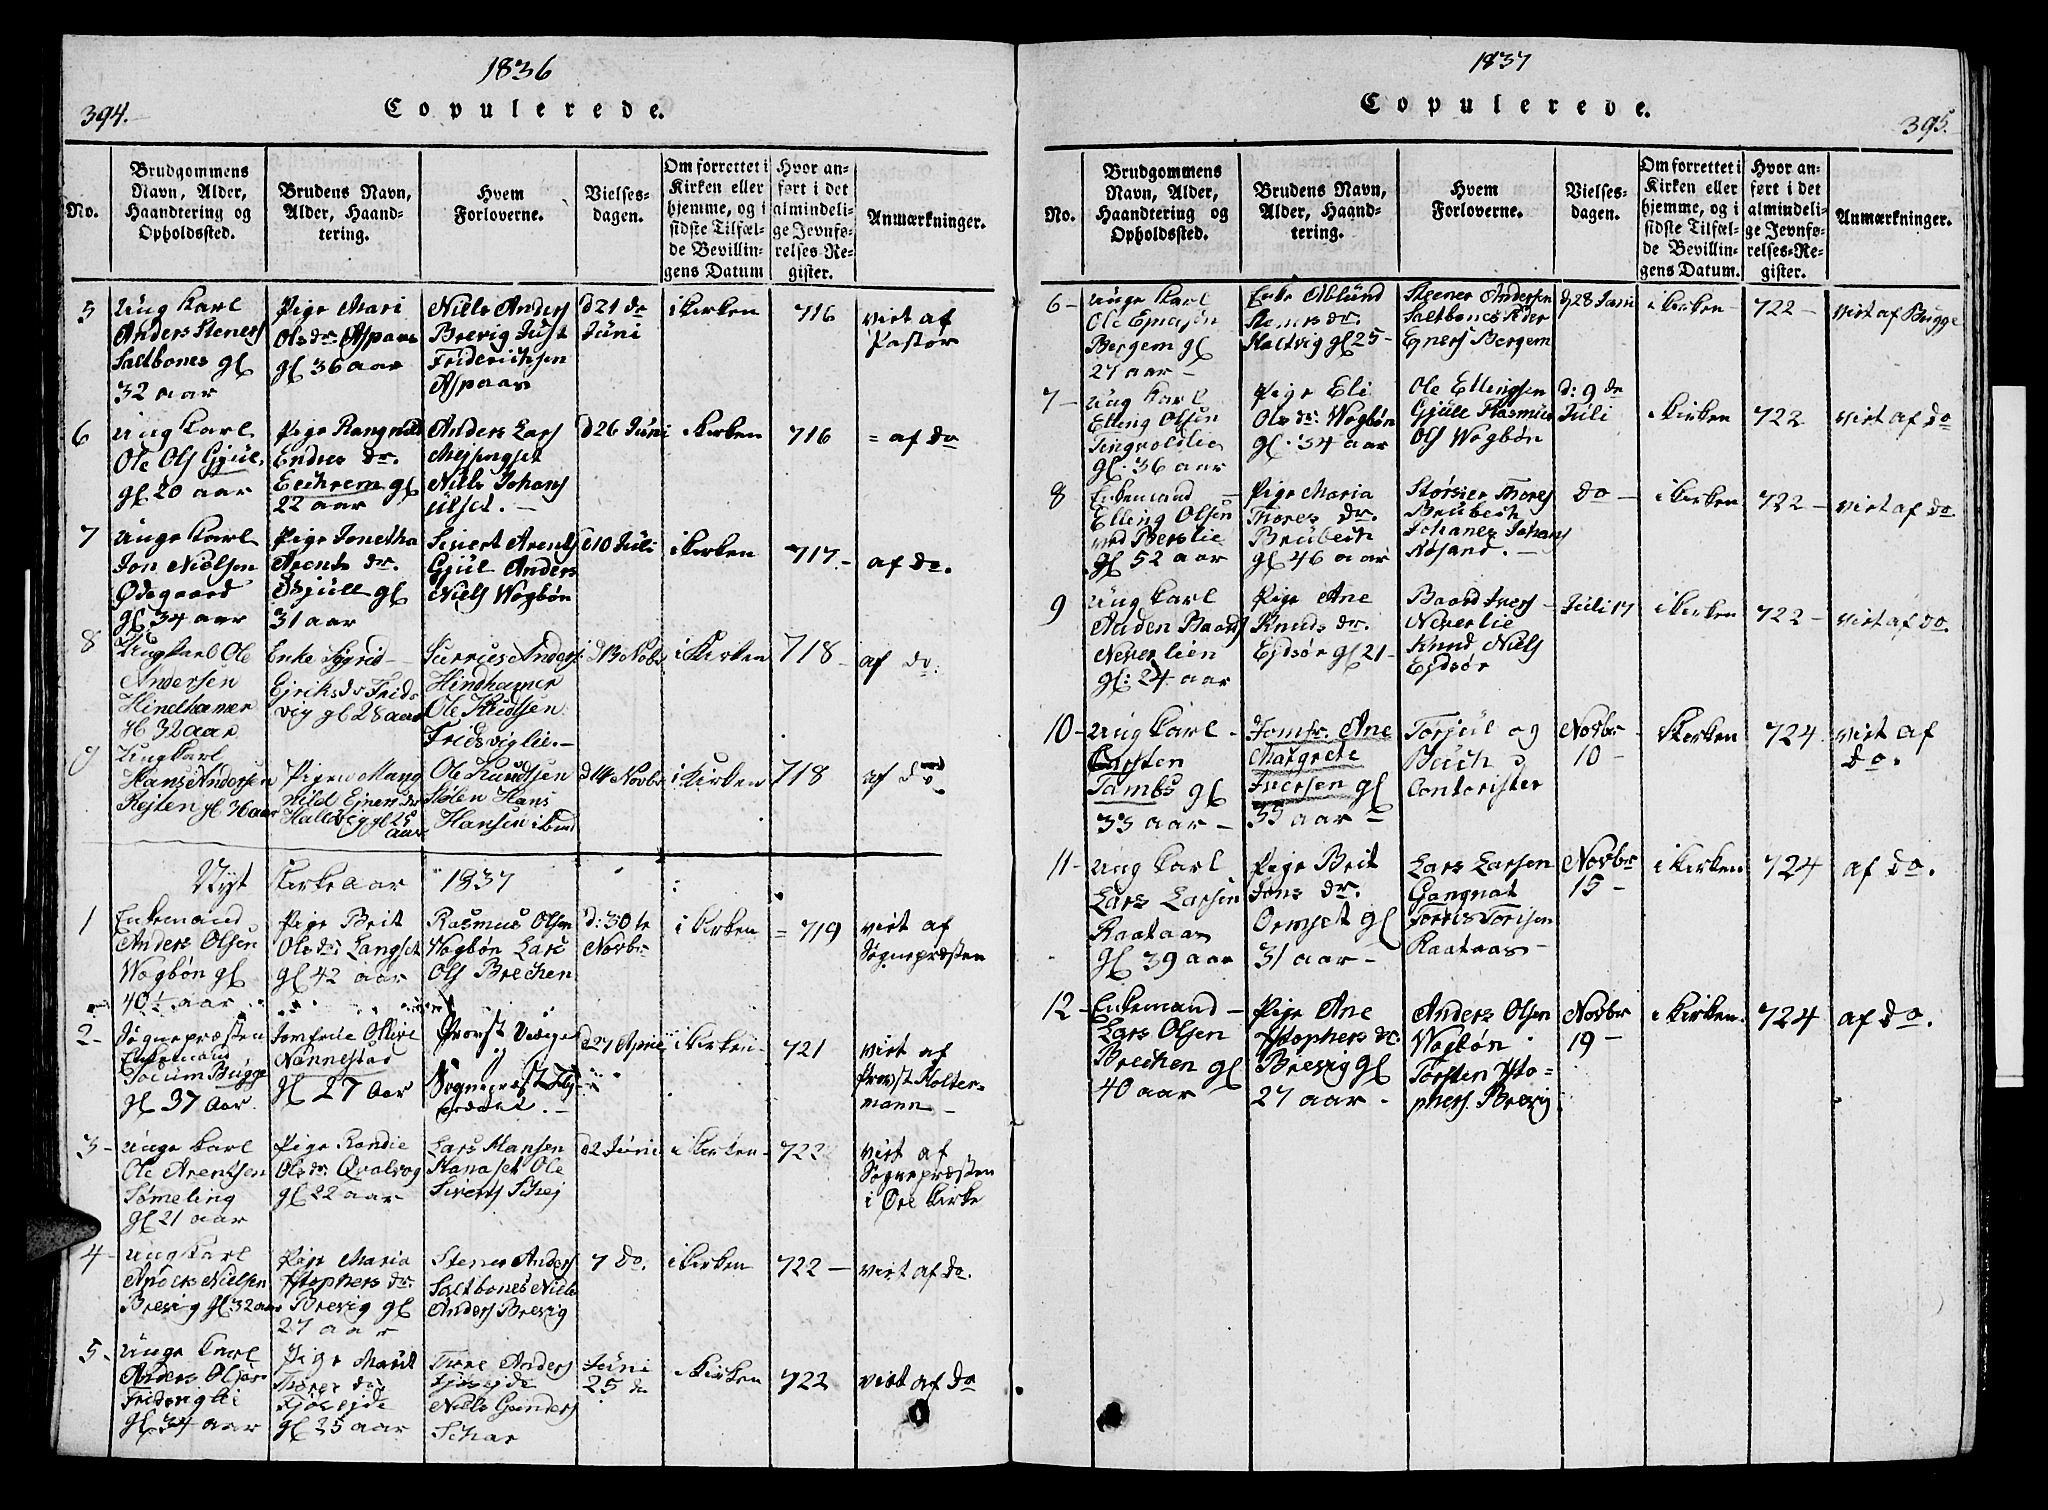 1836
394.
Copulerede.
No.
Brudgommens Navn, Alder, Haandtering og Opholdssted.
Brudens Navn, Alder, Haandtering.
Hvem Forloverne.
Vielsesdagen.
Om forrettet i Kirken eller hjemme, og i sidste Tilfælde Bevillingens Datum
Hvor anført i det almindelige Jevnførelses-Register.
Anmærkninger.
5 Ung Karl Anders Steners Saltbones gl 32 aar
Pige Mari Olsdr Aspaas gl 36 aar
Niels Anders Brevig Just Friderichsen Aspaas
d 21 do Juni
i Kirken
716
viet af Pastor
6 Ung Karl Ole Ols Gjul. gl 20 aar
Pige Rangnild Endres dr. Eechrem gl 22 aar
Anders Lars Niels Johans ulset. –
d 26 Juni
i Kirken
716
= af do
7 Unge Karl Jon Nielsen Ødegaard gl 34 aar
Pige Jonetha Arents dr. gl 31 aar
Sivert Arents Gjul Anders Niels Wogbøn
d 10 Juli
i Kirken
717. –
af do.
8 Ung Karl Ole Andersen Hindhamer gl 32 aar
Enke Sigrid Ejriks dr Fridsvig gl 28 aar
Anders Hindhamer Ole Knudsen Fridsviglie. –
d 13 Novbr
i Kirken
718 –
af do.
9 Ung Karl Hans Andersen Rejten gl 36 aar
Pigen Mangnild Ejners dr Haltvig gl 25 aar
Ole Knudsen Stølen Hans Hansen ibid
d 14 Novbr
i Kirken
718
af do
Nyt Kirkeaar 1837
1 Enkemand Anders Olsen Wogbøn gl 40½ aar
Pige Brit Olsdr: Langset gl 42 aar
Rasmus Olsen Wogbøn Lars Ols Brechen
d: 30te Novbr
i Kirken
= 719
viet af Sognepræsten
2- Sognepræsten Enkemand Bugge gl 37 Aar.
Jomfrue Olline Nannestad gl 27 Aar
Provst
d 27 April
i Kirken –
721
viet af Provst Holtermann –
3- Unge Karl Ole Arentsen Sømeling gl 21 aar
Pige Randie Olsdr: Qvalvog gl 22 aar
Lars Hansen Hanaset Ole Siverts
d 2 Juni
i Kirken –
722
viet af Sognepræsten i Øre Kirke
4- Ung Karl Anders Nielsen Brevig gl 32 aar
Pige Maria Xstophers dr Brevig gl 27 aar
Stener Anders Saltbones Niels Anders Brevig
7 do.
i Kirken
722 –
viet af do.
5- Unge Karl Anders Fridsviglie gl 34 aar
Pige Marit Thores dr gl 25 aar
Thore Anders Niels Gunders
Juni 25 do
i Kirken
722
viet af do
1837
Copulerede.
395.
No.
Brudgommens Navn, Alder, Haandtering og Opholdssted.
Brudens Navn, Alder, Haandtering.
Hvem Forloverne.
Vielsesdagen.
Om forrettet i Kirken eller hjemme, og i sidste Tilfælde Bevillingens Datum.
Hvor anført i det almindelige Jevnførelses-Register.
Anmærkninger.
6- Unge Karl Ole Ejnersen Bergem gl 27 aar –
Enke Ablund Steners dr. Haltvig gl 25 –
Steener Andersen Saltbones Peder Ejners Bergem
d 28 Juni
i Kirken –
722 –
viet af Bugge
7- Ung Karl Elling Olsen Tingvoldlie gl. 36 aar
Pige Eli Ols dr: Wogbøn gl. 34 aar
Ole Ellingsen Gjull Rasmus Ols Wogbøn
d: 9 do Juli
i Kirken
722
viet af do
8 Enkemand – Elling Olsen ved Berslie gl 52 aar
Pige Maria Thores dr. Brubech gl 46 aar
Thores Brubech Johanes Johans Nøsand. –
do –
i Kirken
722 –
viet af do.
9 Ung Karl Auden Baards Neverlien gl: 24 aar
Pige Ane Knuds dr. Ejdsør gl 21 –
Baard Ivers Neverlie Knud Niels Ejdsør
Juli 17
i Kirken
722 –
viet af do.
10- Ung Karl – Carsten Tambs gl 33 aar –
Jomfr. Ane Margrete Iversen gl 33 aar –
Torjul og Buch Contorister
Novbr 10 –
i Kirken
724
viet af do.
11- Ung Karl Lars Larsen Raataas gl 39 aar
Pige Brit Jons dr. Ormset gl 31 aar –
Lars Larsen Gangnat Torres Torisen Raataas –
Novbr 15 –
i Kirken
724
af do.
12- Enkemand – Lars Olsen Brechen gl 40 aar
Pige Ane Xstophers dr: Brevig gl 27 aar –
Anders Olsen Wogbøn Torsten Xstophers. Brevig
Novbr 19 –
i Kirken.
724
af do.